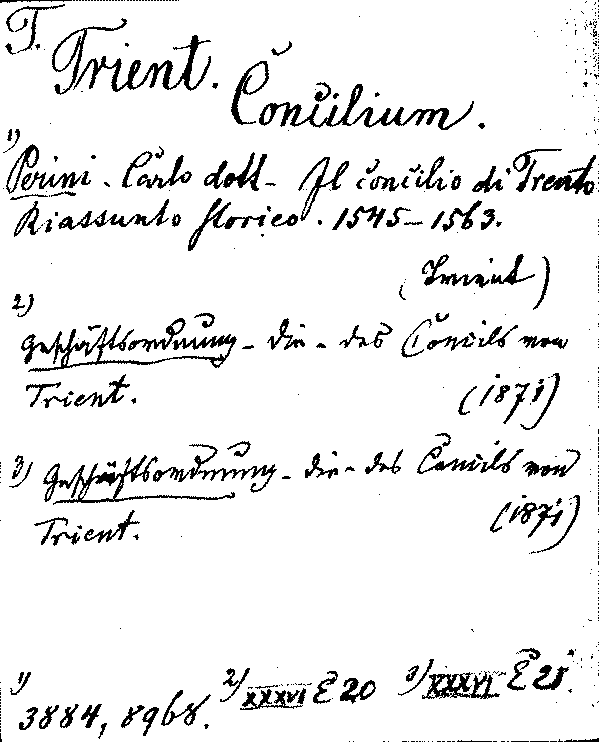 T.
Trient.
Concilium.
1)
Perini. Carlo dott- Il concilio di Trento
Riassunto storico. 1545-1563.
(Trient)
2)
Geschäftsordnung - die - des Concils von
Trient. (1871)
3) Geschäftsordnung - die - des Concils von
Trient. (1871)
1) 2) XXXVI E 20 3) XXXVI E 21.
3884, 8968.